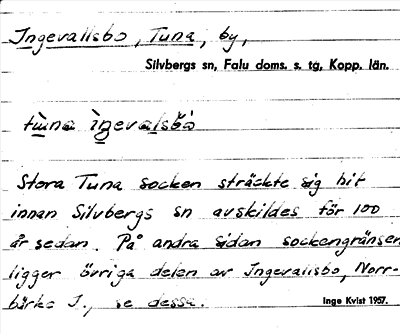 Ingevallsbo, Tuna, by,
Silvbergs sn, Falu doms. s. tg, Kopp. län.
tùna ìŋevalsbò
Stora Tuna socken sträckte sig hit
innan Silvbergs sn avskildes för 100
år sedan. På andra sidan sockengränsen
ligger övriga delen av Ingevallsbo, Norr-
bärke S., se dessa.
Inge Kvist 1957.